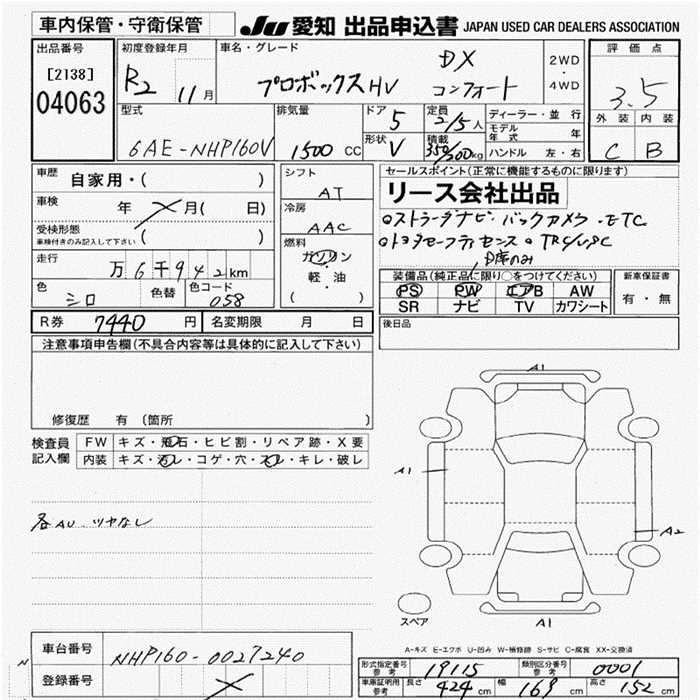 車内保管・守衛保管
JU 愛知 出品申込書 JAPAN USED CAR DEALERS ASSOCIATION
出品番号
[2138]
04063
初度登録年月
R2 11月
車名・グレード
プロボックスHV
DX
コンフォート
2WD
・
4WD
評価点
3.5
外装 内装
C B
型式
6AE-NHP160V
排気量
1500 CC
ドア 5
形状 V
定員 2/5人
積載 kg
ディーラー・並行
モデル年式 年
ハンドル 左・右
車歴 自家用・( )
車検 年 月( 日)
受検形態
車検付きのみ記入して下さい ( )
走行
万6千942km
色 シロ
色替
色コード 058
シフト
AT
冷房
AAC
燃料
ガソリン
軽・油
( )
セールスポイント(正常に機能するものに限ります)
リース会社出品
ストラーダナビ バックカメラ ETC
トヨタセーフティセンス TRC/VSC
装備品(純正品に限り○をつけてください)
PS PW エアB AW
SR ナビ TV カワシート
新車保証書
有・無
R券 7440 円
名変期限 月 日
後日品
注意事項申告欄(不具合内容等は具体的に記入して下さい)
修復歴 有 (箇所 )
検査員記入欄
FW キズ・飛石・ヒビ割・リペア跡・X要
内装 キズ・汚レ・コゲ・穴・スレ・キレ・破レ
各AU ツヤなし
A1
A1
A2
A1
スペア
A-キズ E-エクボ U-凹み W-補修跡 S-サビ C-腐食 XX-交換済
車台番号 NHP160-0027240
登録番号
型式指定番号 参考 19115
類別区分番号 参考 0001
車庫証明用 参考 長さ 424 cm 幅 169 cm 高さ 152 cm